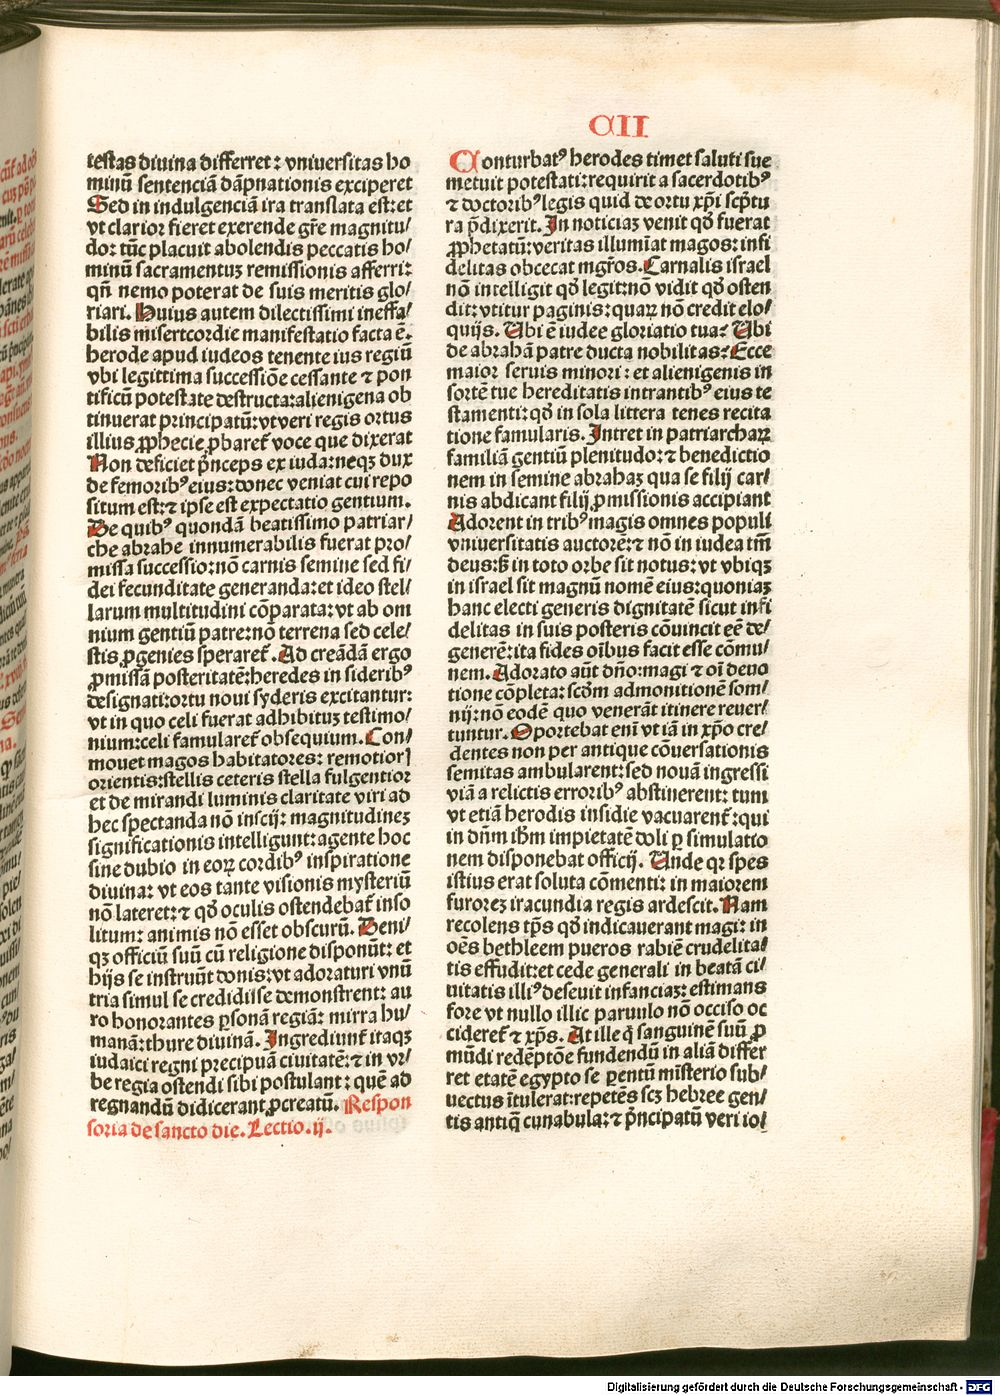 CII
testas diuina differret: vniuersitas ho
minū sentenciā dāpnationis exciperet
Sed in indulgenciā ira translata est: et
vt clarior fieret exerende gr̄e magnitu/
do: tūc placuit abolendis peccatis ho/
minū sacramentuꝫ remissionis afferri:
qn̄ nemo poterat de suis meritis glo/
riari. Huius autem dilectissimi ineffa/
bilis misertcordie manifestatio facta ē.
herode apud iudeos tenente ius regiū
vbi legittima successiōe cessante ⁊ pon
tificū potestate destructa: alienigena ob
tinuerat principatū: vt veri regis ortus
illius ꝓphecie ꝓbaret᷑ voce que dixerat
Non deficiet p̄nceps ex iuda: neqꝫ dux
de femoribꝰ eius: donec veniat cui repo
situm est: ⁊ ipse est expectatio gentium.
De quibꝰ quondā beatissimo patriar/
che abrahe innumerabilis fuerat pro/
missa successio: nō carnis semine sed fi/
dei fecunditate generanda: et ideo stel/
larum multitudini cōparata: vt ab om
nium gentiū patre: nō terrena sed cele/
stis ꝓgenies speraret᷑. Ad creādā ergo
ꝓmissā posteritatē: heredes in sideribꝰ
designati: ortu noui syderis excitantur:
vt in quo celi fuerat adhibituꝫ testimo/
nium: celi famularet᷑ obsequium. Con/
mouet magos habitatores: remotior
orientis: stellis ceteris stella fulgentior
et de mirandi luminis claritate viri ad
hec spectanda nō inscij: magnitudineꝫ
significationis intelligunt: agente hoc
sine dubio in eoꝝ cordibꝰ inspiratione
diuina: vt eos tante visionis mysteriū
nō lateret: ⁊ qđ oculis ostendebat᷑ inso
litum: animis nō esset obscurū. Deni/
qꝫ officiū suū cū religione disponūt: et
hijs se instruūt donis: vt adoraturi vnū
tria simul se credidisse demonstrent: au
ro honorantes ꝑsonā regiā: mirra hu/
manā: thure diuinā. Ingrediunt᷑ itaqꝫ
iudaici regni precipuā ciuitatē: ⁊ in vr/
be regia ostendi sibi postulant: quē ad
regnandū didicerant ꝓcreatū. Respon
soria de sancto die. Lectio .ij.
Conturbatꝰ herodes timet saluti sue
metuit potestati: requirit a sacerdotibꝰ
⁊ doctoribꝰ legis quid de ortu xp̄i scp̄tu
ra p̄dixerit. In noticiaꝫ venit qđ fuerat
ꝓphetatū: veritas illumīat magos: infi
delitas obcecat mgr̄os. Carnalis israel
nō intelligit qđ legit: nō vidit qđ osten
dit: vtitur paginis: quaꝝ nō credit elo/
quijs. Vbi ē iudee gloriatio tua? Vbi
de abrahā patre ducta nobilitas? Ecce
maior seruis minori: et alienigenis in
sortē tue hereditatis intrantibꝰ eius te
stamenti: qđ in sola littera tenes recita
tione famularis. Intret in patriarchaꝝ
familiā gentiū plenitudo: ⁊ benedictio
nem in semine abrahaꝫ qua se filij car/
nis abdicant filij ꝓmissionis accipiant
Adorent in tribꝰ magis omnes populi
vniuersitatis auctorē: ⁊ nō in iudea tm̄
deus: ſꝫ in toto orbe sit notus: vt vbiqꝫ
in israel sit magnū nomē eius: quoniaꝫ
hanc electi generis dignitatē sicut infi
delitas in suis posteris cōuincit eē de/
generē: ita fides oībus facit esse cōmu/
nem. Adorato aūt dn̄o: magi ⁊ oī deuo
tione cōpleta: scđm admonitionē som/
nij: nō eodē quo venerāt itinere reuer/
tuntur. Oportebat enī vt iā in xp̄o cre/
dentes non per antique cōuersationis
semitas ambularent: sed nouā ingressi
viā a relictis erroribꝰ abstinerent: tum
vt etiā herodis insidie vacuarent᷑: qui
in dn̄m ihm̄ impietatē doli ꝑ simulatio
nem disponebat officij. Unde qꝛ spes
istius erat soluta cōmenti: in maiorem
furoreꝫ iracundia regis ardescit. Nam
recolens tp̄s qđ indicauerant magi: in
oēs bethleem pueros rabiē crudelita/
tis effudit: et cede generali in beatā ci/
uitatis illiꝰ deseuit infanciaꝫ: estimans
fore vt nullo illic paruulo nō occiso oc
cideret᷑ ⁊ xp̄s. At ille q̇ sanguinē suū ꝓ
mūdi redēptōe fundendū in aliā differ
ret etatē egypto se ꝑentū mīsterio sub/
uectus ītulerat: repetēs scꝫ hebree gen/
tis antiq̄ cunabula: ⁊ p̄ncipatū veri io/